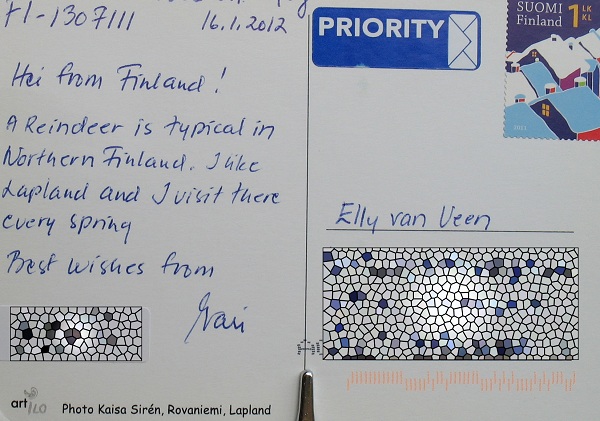 FI-1307111
16.1.2012
Hei from Finland!
A Reindeer is typical in
Northern Finland. I like
Lapland and I visit there
every spring
Best wishes from
art ILO
Photo Kaisa Sirén, Rovaniemi, Lapland
PRIORITY
SUOMI
Finland
1 LK
KL
2011
Elly van Veen